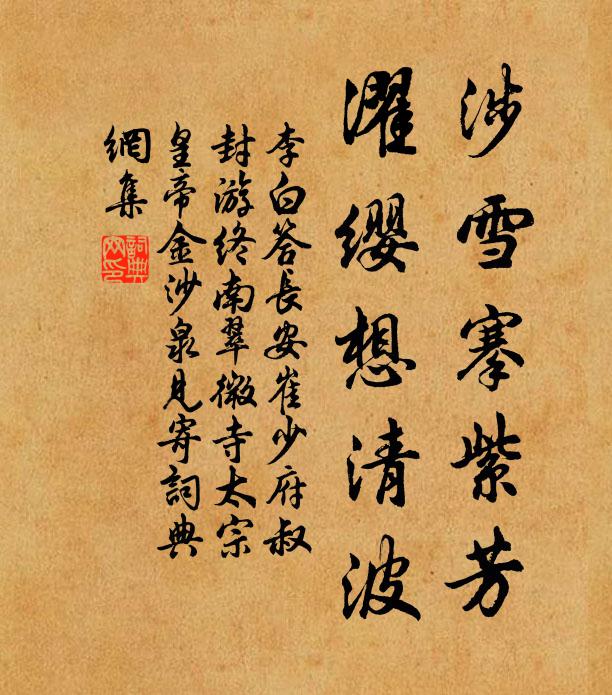 涉雪搴紫芳
濯缨想清波
李白答长安崔少府叔
封游终南翠微寺太宗
皇帝金沙泉見寄詞典
網集
詞典
网印